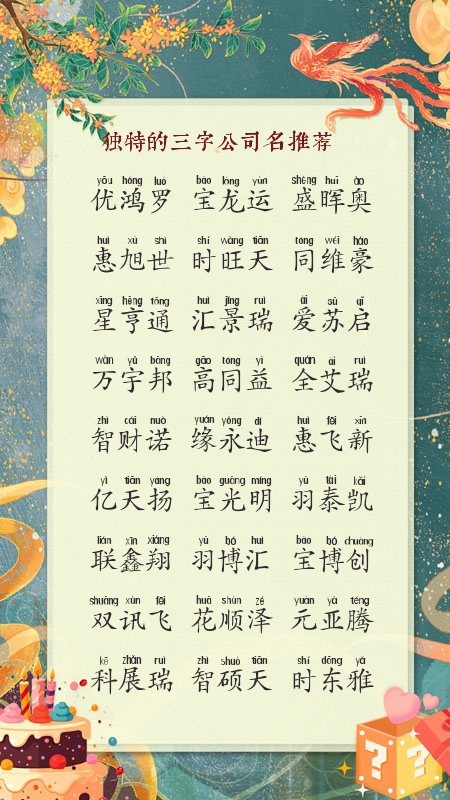 独特的三字公司名推荐
yōu hóng luó bǎo lóng yùn shèng huī ào
优鸿罗 宝龙运 盛晖奥
huì xù shì shí wàng tiān tóng wéi háo
惠旭世 时旺天 同维豪
xīng hēng tōng huì jǐng ruì ài sū qǐ
星亨通 汇景瑞 爱苏启
wàn yǔ bāng gāo tóng yì quán ài ruì
万宇邦 高同益 全艾瑞
zhì cái nuò yuán yǒng dí huì fēi xīn
智财诺 缘永迪 惠飞新
yì tiān yáng bǎo guāng míng yǔ tài kǎi
亿天扬 宝光明 羽泰凯
lián xīn xiáng yǔ bó huì bǎo bó chuàng
联鑫翔 羽博汇 宝博创
shuāng xùn fēi huā shùn zé yuán yà téng
双讯飞 花顺泽 元亚腾
kē zhǎn ruì zhì shuò tiān shí dōng yǎ
科展瑞 智硕天 时东雅
? ?